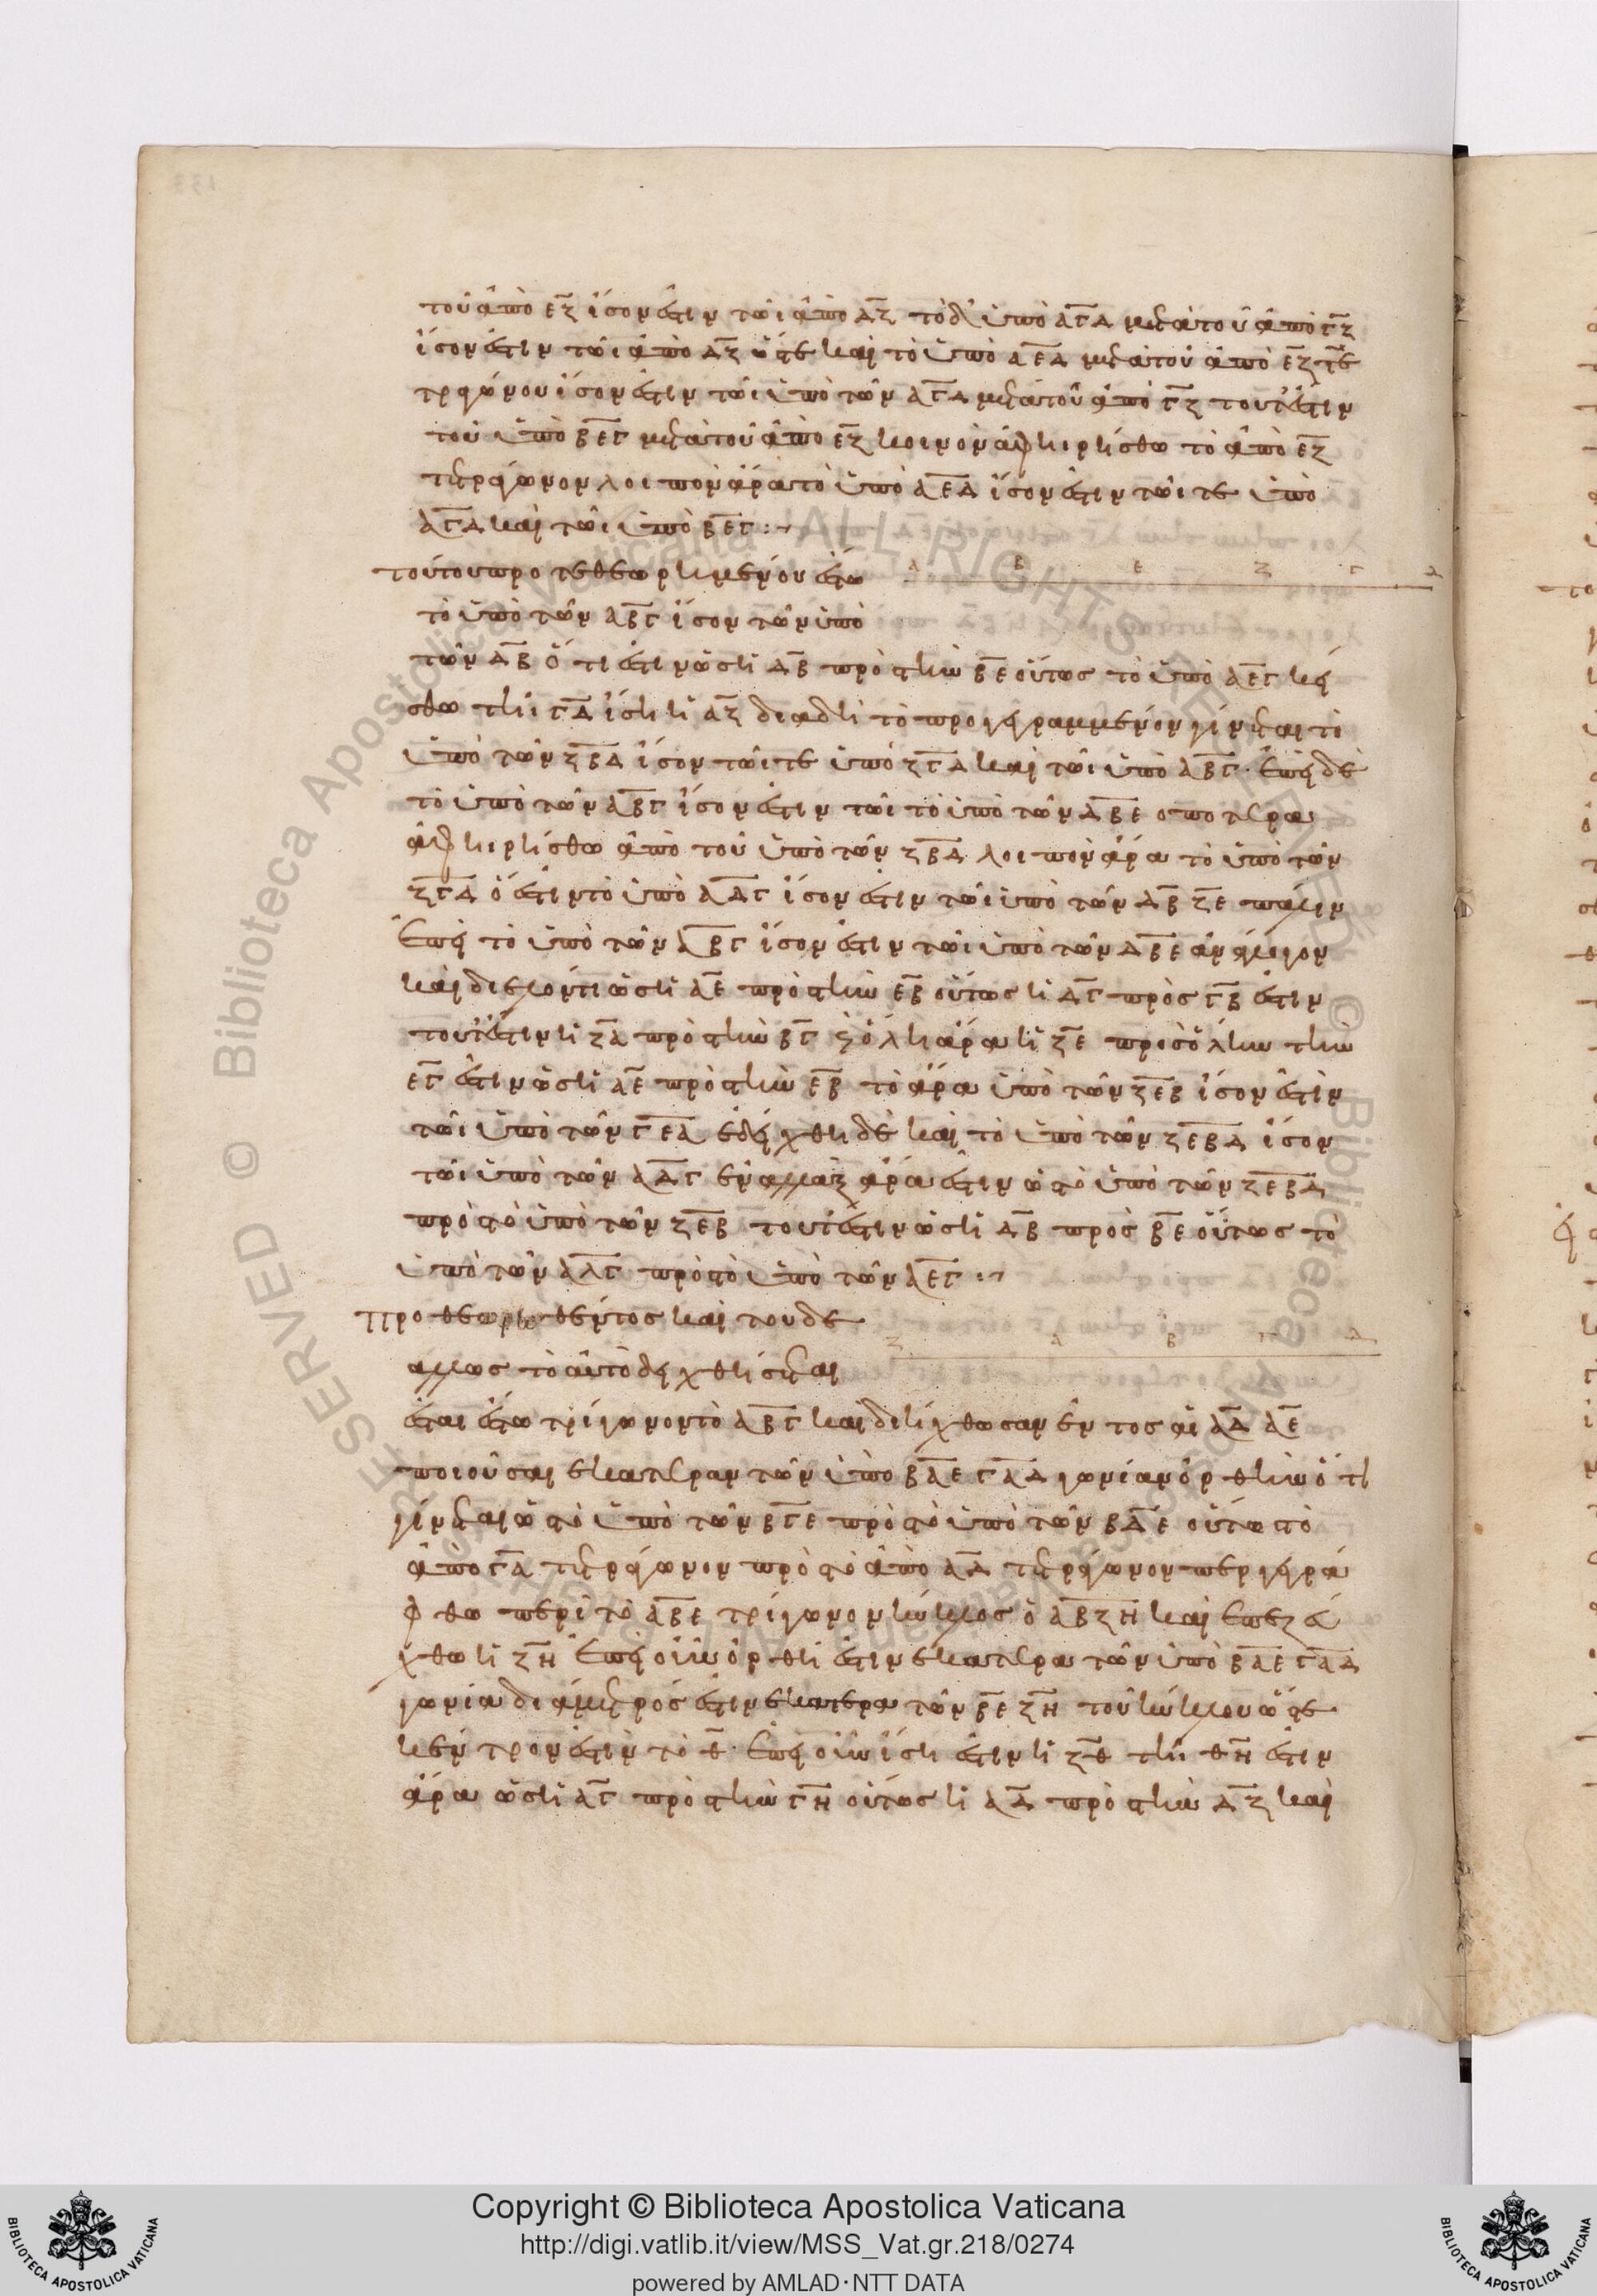 τοῦ ἀπὸ ΕΖ ἴσον ἐστὶν τῶι ἀπὸ ΔΖ τὸ δ' ὑπὸ ΑΓΔ μετὰ τοῦ ἀπὸ ΓΖ
ἴσον ἐστὶν τῶι ἀπὸ ΔΖ ὥστε καὶ τὸ ὑπὸ ΑΕΔ μετὰ τοῦ ἀπὸ ΕΖ τε
τραγώνου ἴσον ἐστὶν τῶι ὑπὸ τῶν ΑΓΔ μετὰ τοῦ ἀπὸ ΓΖ τουτέστιν
τοῦ ὑπὸ ΒΕΓ μετὰ τοῦ ἀπὸ ΕΖ κοινὸν ἀφηιρήσθω τὸ ἀπὸ ΕΖ
τετράγωνον λοιπὸν ἄρα τὸ ὑπὸ ΑΕΔ ἴσον ἐστὶν τῶι τε ὑπὸ
ΑΓΔ καὶ τῶι ὑπὸ ΒΕΓ :~
τούτου προτεθεωρημένου ἔστω
Α Β Ε Ζ Γ Δ
τὸ ὑπὸ τῶν ΑΒΓ ἴσον τῶν ὑπὸ
τῶν ΔΒ ὅτι ἐστὶν ὡς ἡ ΔΒ πρὸς τὴν ΒΕ οὕτως τὸ ὑπὸ ΑΕΓ κεί
σθω τῆι ΓΔ ἴση ἡ ΑΖ διὰ δὴ τὸ προγεγραμμένον γίνεται τὸ
ὑπὸ τῶν ΖΒΔ ἴσον τῶι τε ὑπὸ ΖΓΔ καὶ τῶι ὑπὸ ΑΒΓ. ἐπεὶ δὲ
τὸ ὑπὸ τῶν ΑΒΓ ἴσον ἐστὶν τῶι τὸ ὑπὸ τῶν ΔΒΕ οποτερα
ἀφηιρήσθω ἀπὸ τοῦ ὑπὸ τῶν ΖΒΔ λοιπὸν ἄρα τὸ ὑπὸ τῶν
ΖΓΔ ὅ ἐστιν τὸ ὑπὸ ΑΔΓ ἴσον ἐστὶν τῶι ὑπὸ τῶν ΔΒ ΖΕ πάλιν
ἐπεὶ τὸ ὑπὸ τῶν ΑΒΓ ἴσον ἐστὶν τῶι ὑπὸ τῶν ΔΒΕ ἀνάλογον
καὶ διελόντι ὡς ἡ ΑΕ πρὸς τὴν ΕΒ οὕτως ἡ ΔΓ πρὸς ΓΒ ἐστὶν
τουτέστιν ἡ ΖΑ πρὸς τὴν ΒΓ καὶ ὅλη ἄρα ἡ ΖΕ πρὸς ὅλην τὴν
ΕΓ ἐστὶν ὡς ἡ ΑΕ πρὸς τὴν ΕΒ τὸ ἄρα ὑπὸ τῶν ΖΕΒ ἴσον ἐστὶν
τῶι ὑπὸ τῶν ΓΕΑ ἐδείχθη δὲ καὶ τὸ ὑπὸ τῶν ΖΕΒΔ ἴσον
τῶι ὑπὸ τῶν ΑΔΓ ἐναλλὰξ ἄρα ἐστὶν ὡς τὸ ὑπὸ τῶν ΖΕΒΔ
πρὸς τὸ ὑπὸ τῶν ΖΕΒ τουτέστιν ὡς ἡ ΔΒ πρὸς ΒΕ οὕτως τὸ
ὑπὸ τῶν ΑΔΓ πρὸς τὸ ὑπὸ τῶν ΑΕΓ :~
Προθεωρηθέντος καὶ τοῦδε
Ζ Α Β Γ Δ
ἄλλως τὸ αὐτὸ δειχθήσεται
ἔσται ἔστω τρίγωνον τὸ ΑΒΓ καὶ διήχθωσαν ἐντος αἱ ΑΔ ΑΕ
ποιοῦσαι ἑκατέραν τῶν ὑπὸ ΒΑΕ ΓΑΔ γωνίαν ὀρθήν ὅτι
γίνεται ὡς τὸ ὑπὸ τῶν ΒΓΕ πρὸς τὸ ὑπὸ τῶν ΒΔΕ οὕτω τὸ
ἀπὸ ΓΑ τετράγωνον πρὸς τὸ ἀπὸ ΑΔ τετράγωνον περιγεγρά
φθω περὶ τὸ ΑΒΕ τρίγωνον κύκλος ὁ ΑΒΖΗ καὶ ἐπεζεύ
χθω ἡ ΖΗ ἐπεὶ οὖν ὀρθή ἐστιν ἑκατέρα τῶν ὑπὸ ΒΑΕ ΓΑΔ
γωνία διάμετρός ἐστιν ἑκατέρα τῶν ΒΕ ΖΗ τοῦ κύκλου ὥστε
κέντρον ἐστὶν τὸ Θ. ἐπεὶ οὖν ἴση ἐστὶν ἡ ΖΘ τῆι ΘΗ ἐστὶν
ἄρα ὡς ἡ ΑΓ πρὸς τὴν ΓΗ οὕτως ἡ ΑΔ πρὸς τὴν ΔΖ καὶ
Copyright © Biblioteca Apostolica Vaticana
http://digi.vatlib.it/view/MSS_Vat.gr.218/0274
powered by AMLAD·NTT DATA